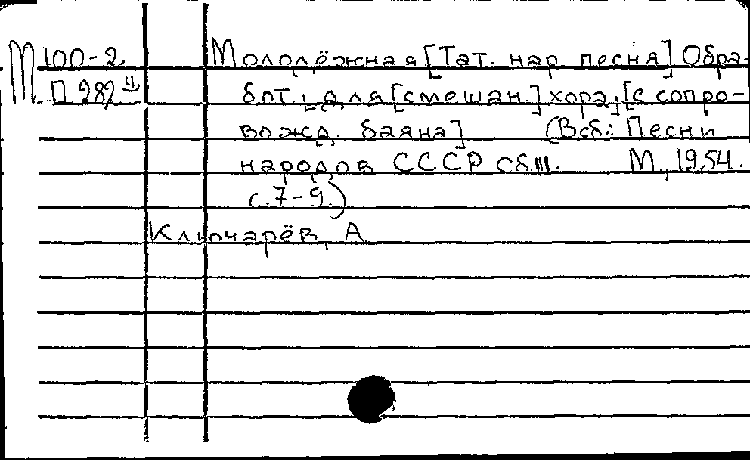 М 100-2 Молодёжная [Тат. нар. песня] Обра-
П 282 II бот. для [смешан.] хора, [с сопро-
вожд. баяна] (В сб.: Песни
народов СССР сб. III. М., 1954.
с. 7-9.)
Ключарёв, А